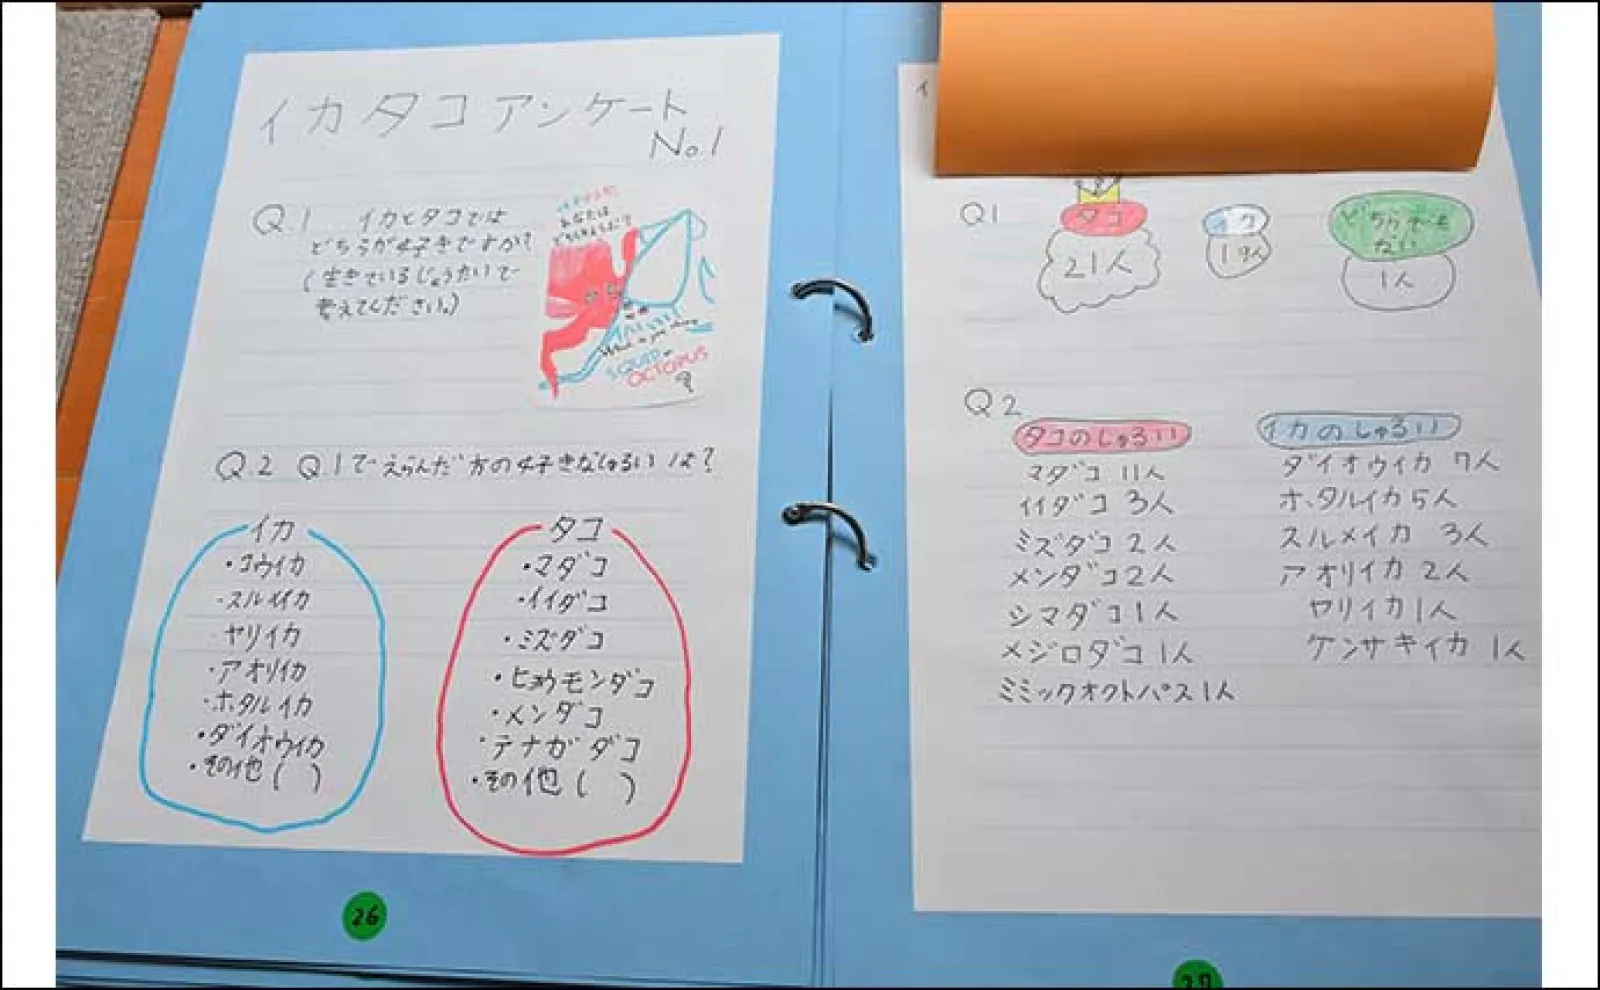 イカタコアンケート
No.1
Q.1 イカとタコでは
どちらが好きですか?
(生きているじょうたいで
考えてください。)
あなたは
SQUID or
OCTOPUS
Q.2 Q1でえらんだ方の好きなしゅるいは?
イカ
・コウイカ
・スルメイカ
・ヤリイカ
・アオリイカ
・ホタルイカ
・ダイオウイカ
・その他( )
タコ
・マダコ
・イイダコ
・ミズダコ
・ヒョウモンダコ
・メンダコ
・テナガダコ
・その他( )
26
イ
Q1
タコ
21人
19人
どちらでも
ない
1人
Q2
タコのしゅるい
マダコ 11人
イイダコ 3人
ミズダコ 2人
メンダコ 2人
シマダコ 1人
メジロダコ 1人
ミミックオクトパス 1人
イカのしゅるい
ダイオウイカ 7人
ホタルイカ 5人
スルメイカ 3人
アオリイカ 2人
ヤリイカ 1人
ケンサキイカ 1人
27